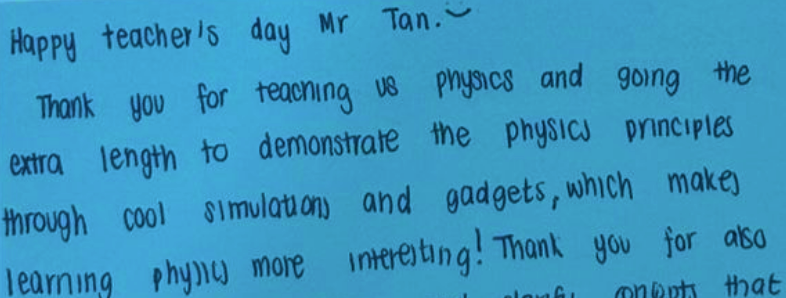 Happy teacher's day Mr Tan.
Thank you for teaching us physics and going the
extra length to demonstrate the physics principles
through cool simulations and gadgets, which makes
learning physics more interesting! Thank you for also
that